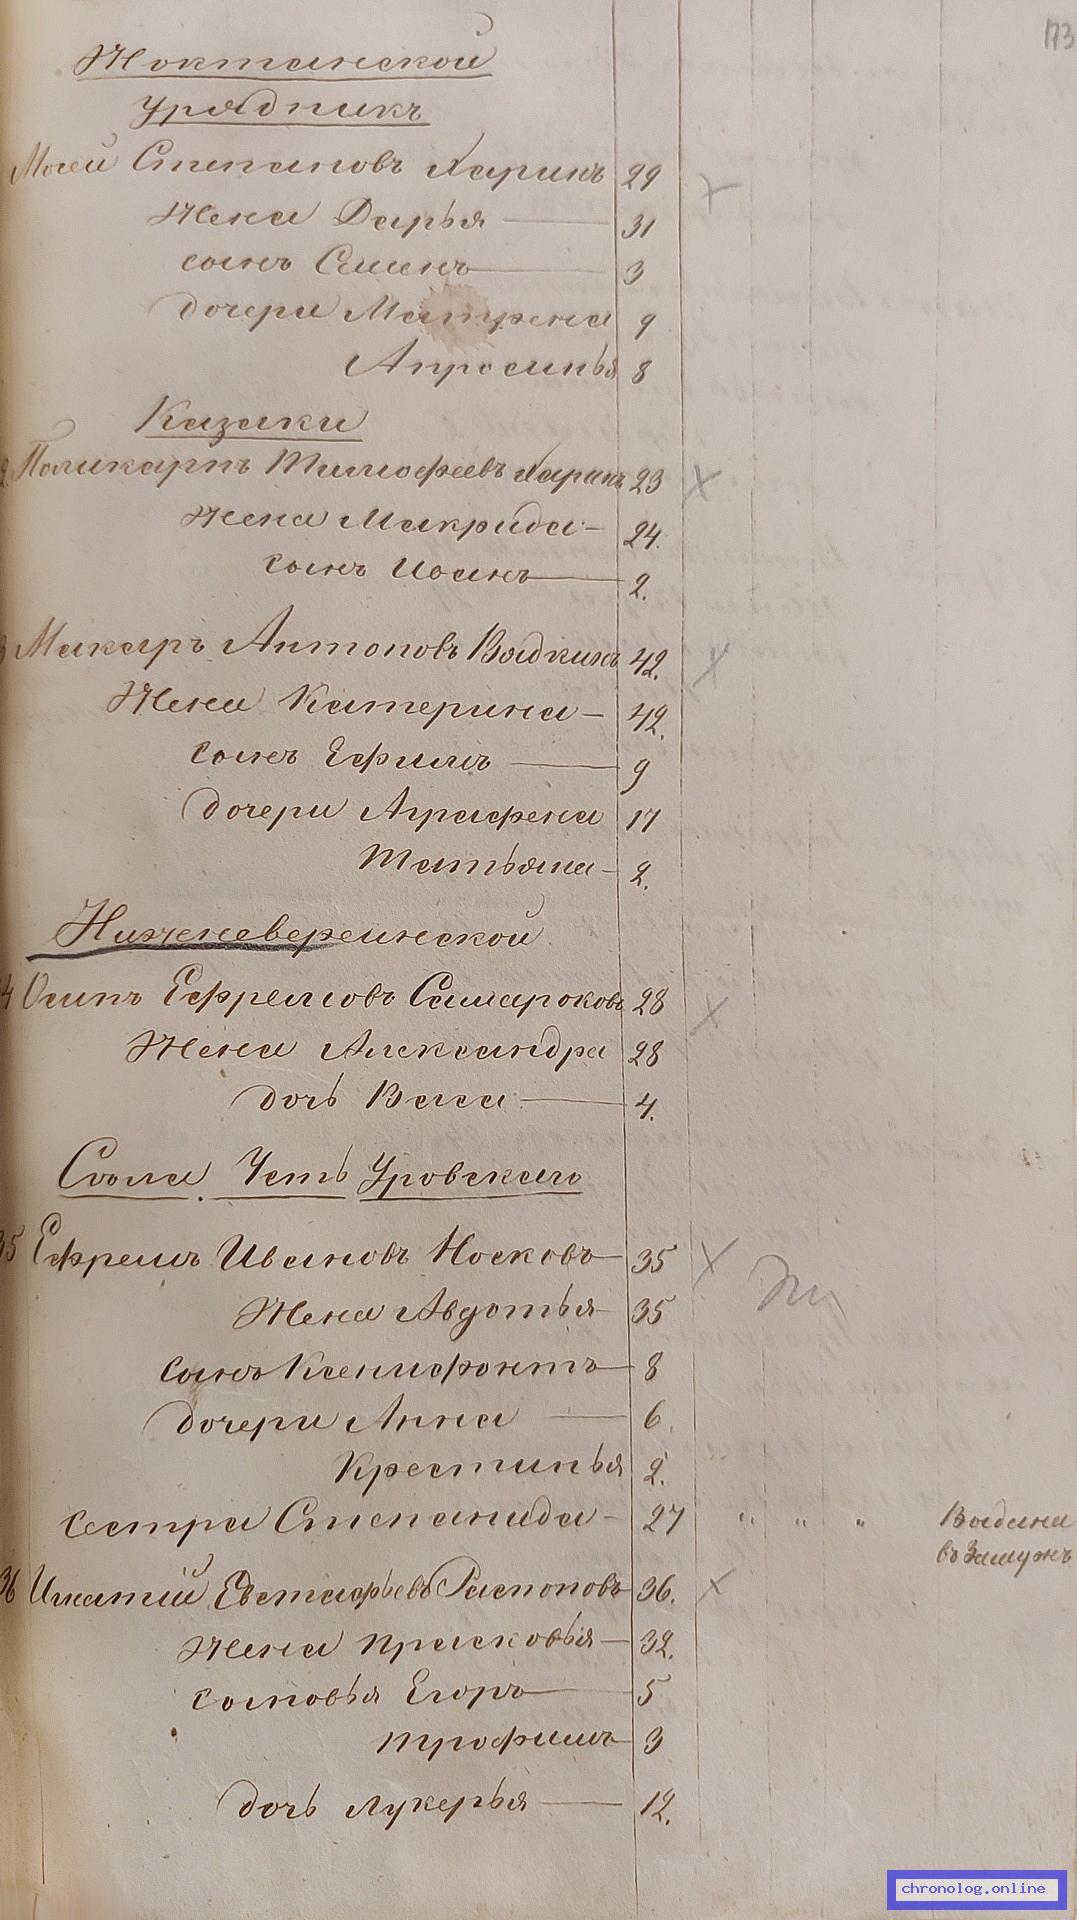 173
Ноктанской
Урядникъ
Мосей Степановъ Харинъ 29
Жена Дарья 31
сынъ Семенъ 3
дочери Матрена 9
Апросинья 8
Казаки
2. Поликарпъ Тимофеевъ Харинъ 23
Жена Макрида 24.
сынъ Иоанъ 2.
3 Макаръ Антоновъ 42.
Жена Катерина 42.
сынъ Ефимъ 9
дочери Аграфена 17
Татьяна 2.
4 Осипъ Ефремовъ Самароковъ 28
Жена Александра 28
дочь Васса 4.
Усть Уровскаго
35 Ефремъ Ивановъ Носковъ 35
Жена Авдотья 35
сынъ Ксенифонтъ 8
дочери Анна 6.
Крестинья 2.
сестра Степанида 27 " " " Выдана
въ Замужъ
36 Игнатій Евстафьевъ Распоповъ 36.
Жена Прасковья 32.
сыновья Егоръ 5
Трофимъ 3
дочь Лукерья 12.
chronolog.online